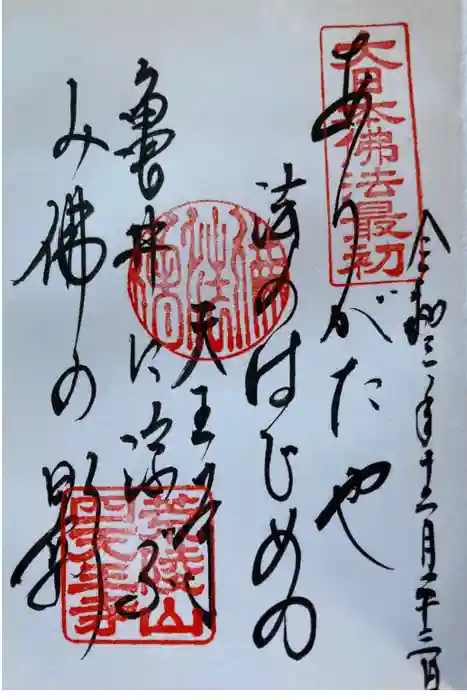 令和三年十二月二十二日
大日本佛法最初
ありがたや
法のはじめの
天王寺
亀井に
み佛の影
荒陵山
四天王寺